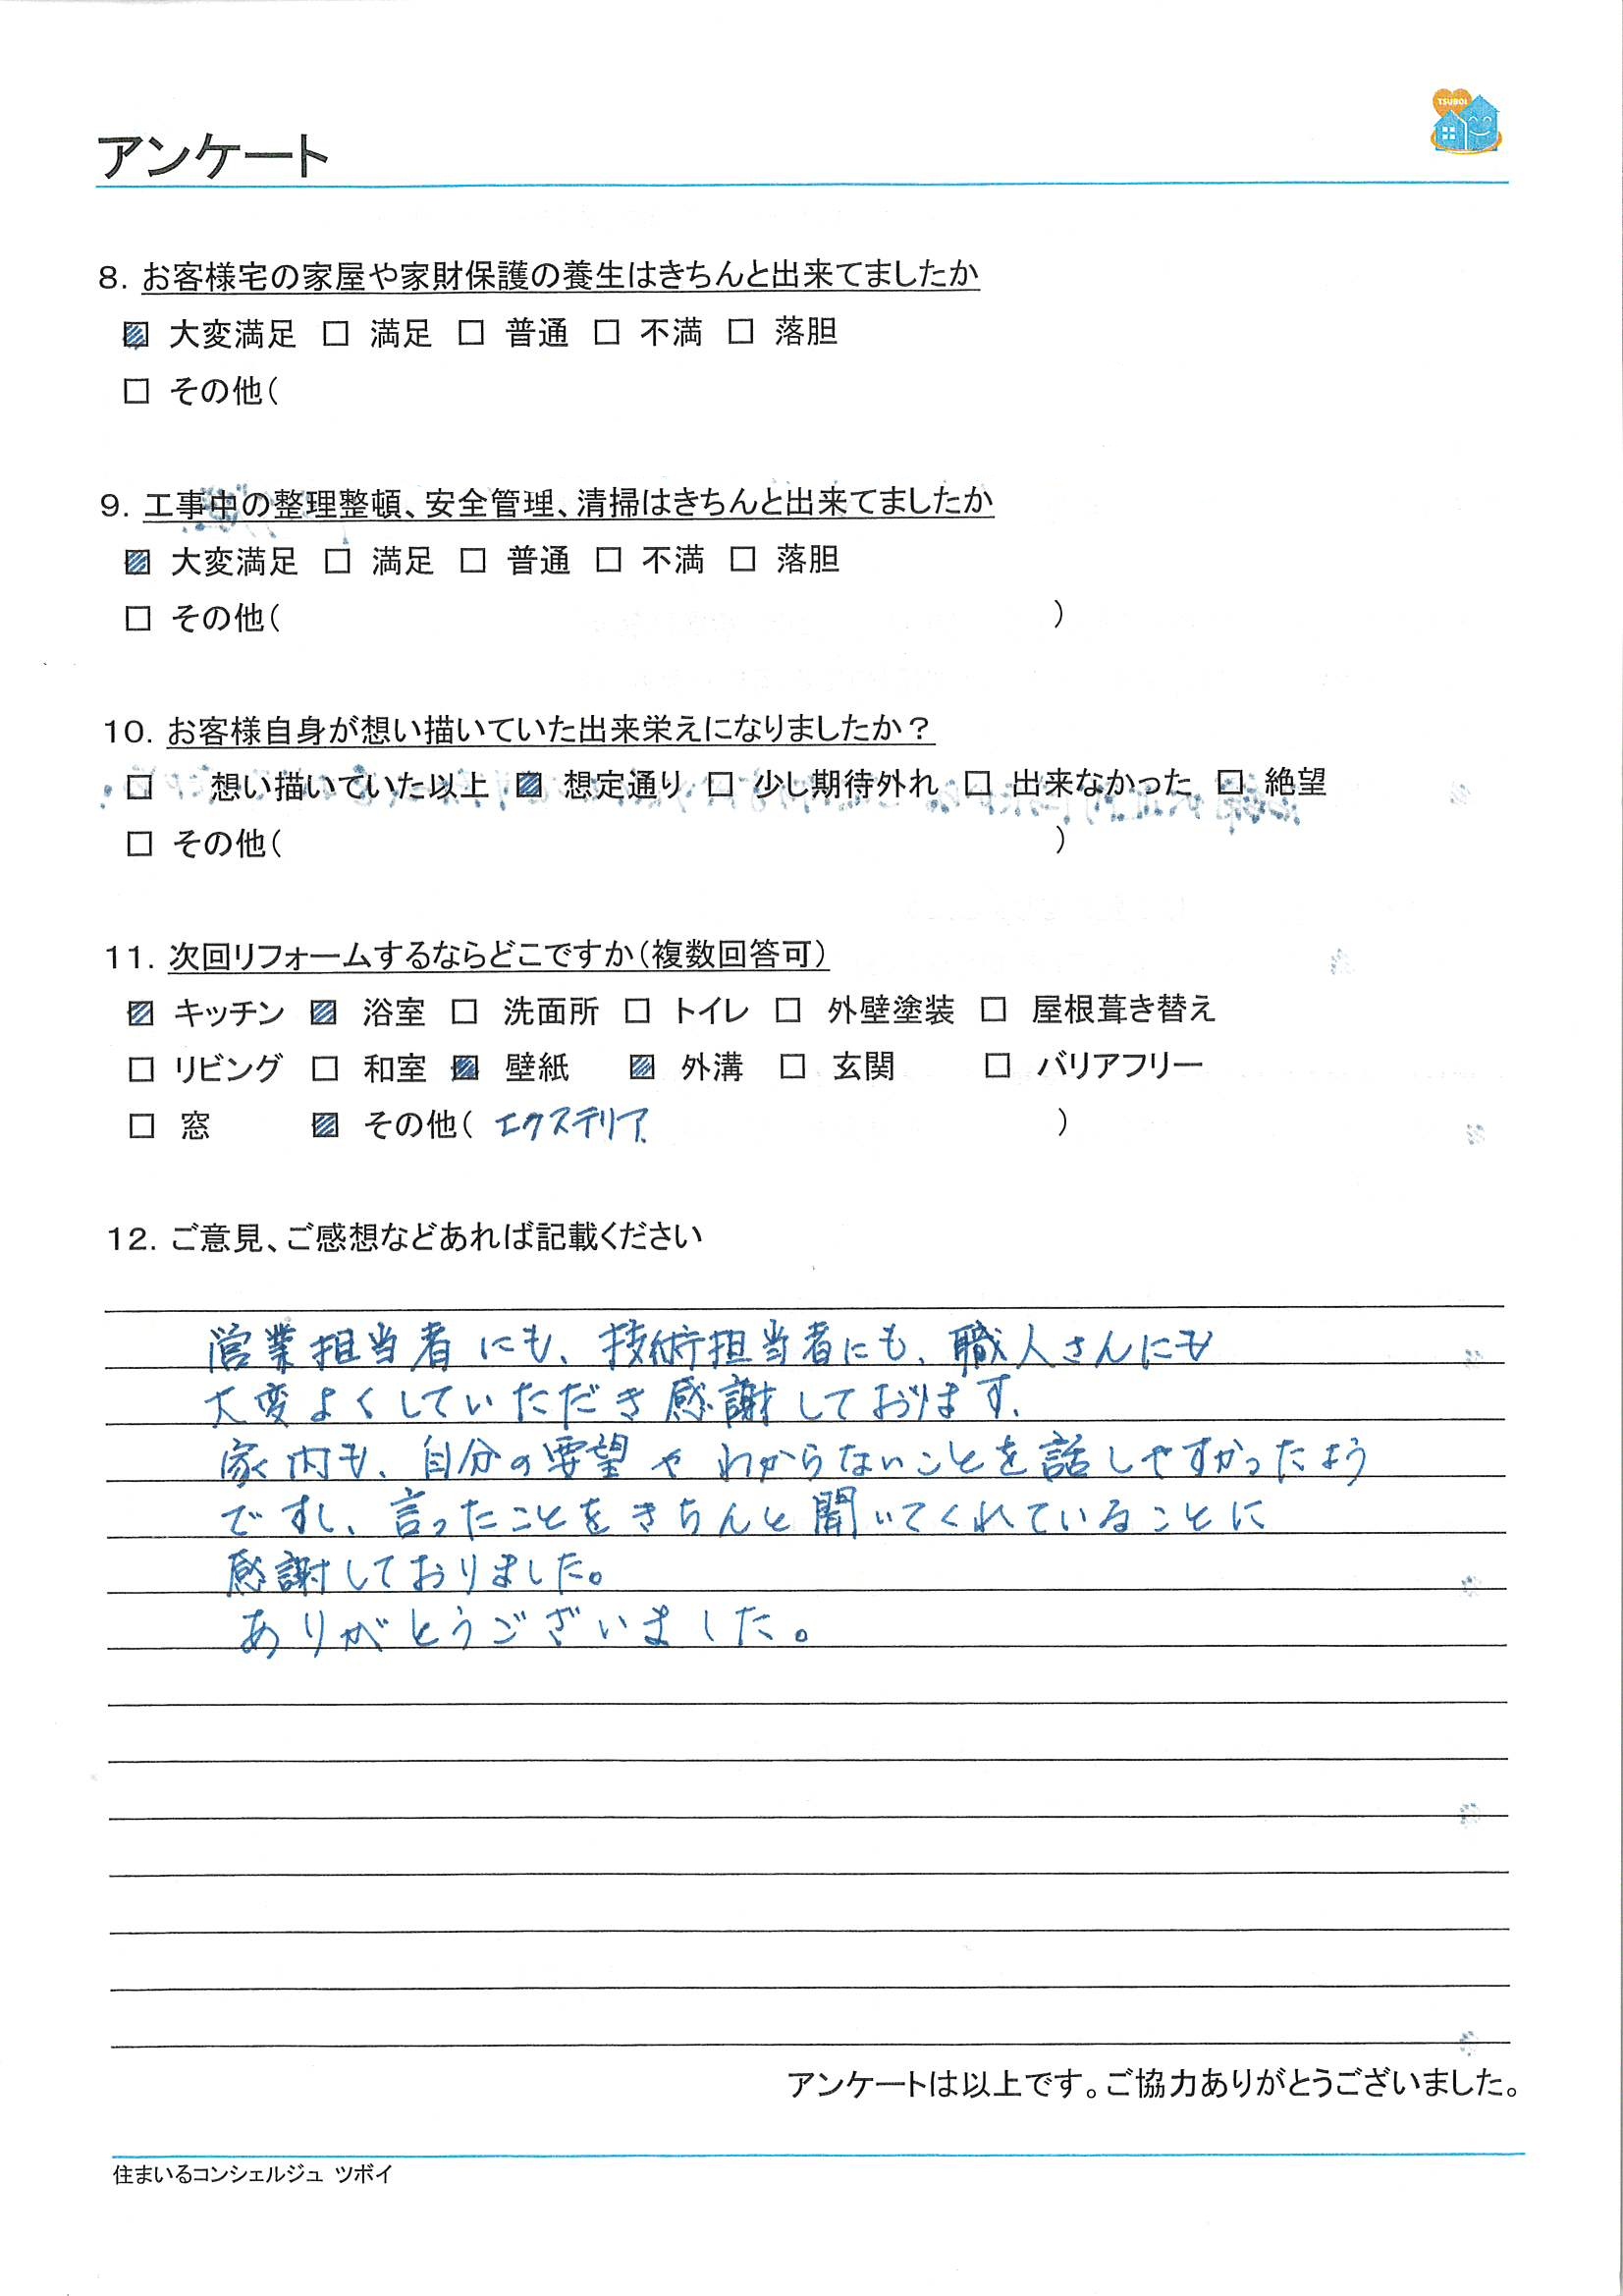 TSUBOI
アンケート
8. お客様宅の家屋や家財保護の養生はきちんと出来てましたか
▨ 大変満足 □ 満足 □ 普通 □ 不満 □ 落胆
□ その他(
9. 工事中の整理整頓、安全管理、清掃はきちんと出来てましたか
▨ 大変満足 □ 満足 □ 普通 □ 不満 □ 落胆
□ その他( )
10. お客様自身が想い描いていた出来栄えになりましたか?
□ 想い描いていた以上 ▨ 想定通り □ 少し期待外れ □ 出来なかった □ 絶望
□ その他( )
11. 次回リフォームするならどこですか(複数回答可)
▨ キッチン ▨ 浴室 □ 洗面所 □ トイレ □ 外壁塗装 □ 屋根葺き替え
□ リビング □ 和室 ▨ 壁紙 ▨ 外溝 □ 玄関 □ バリアフリー
□ 窓 ▨ その他( エクステリア )
12. ご意見、ご感想などあれば記載ください
営業担当者にも、技術担当者にも、職人さんにも
大変よくしていただき感謝しております。
家内も、自分の要望やわからないことを話しやすかったよう
ですし、言ったことをきちんと聞いてくれていることに
感謝しておりました。
ありがとうございました。
アンケートは以上です。ご協力ありがとうございました。
住まいるコンシェルジュ ツボイ